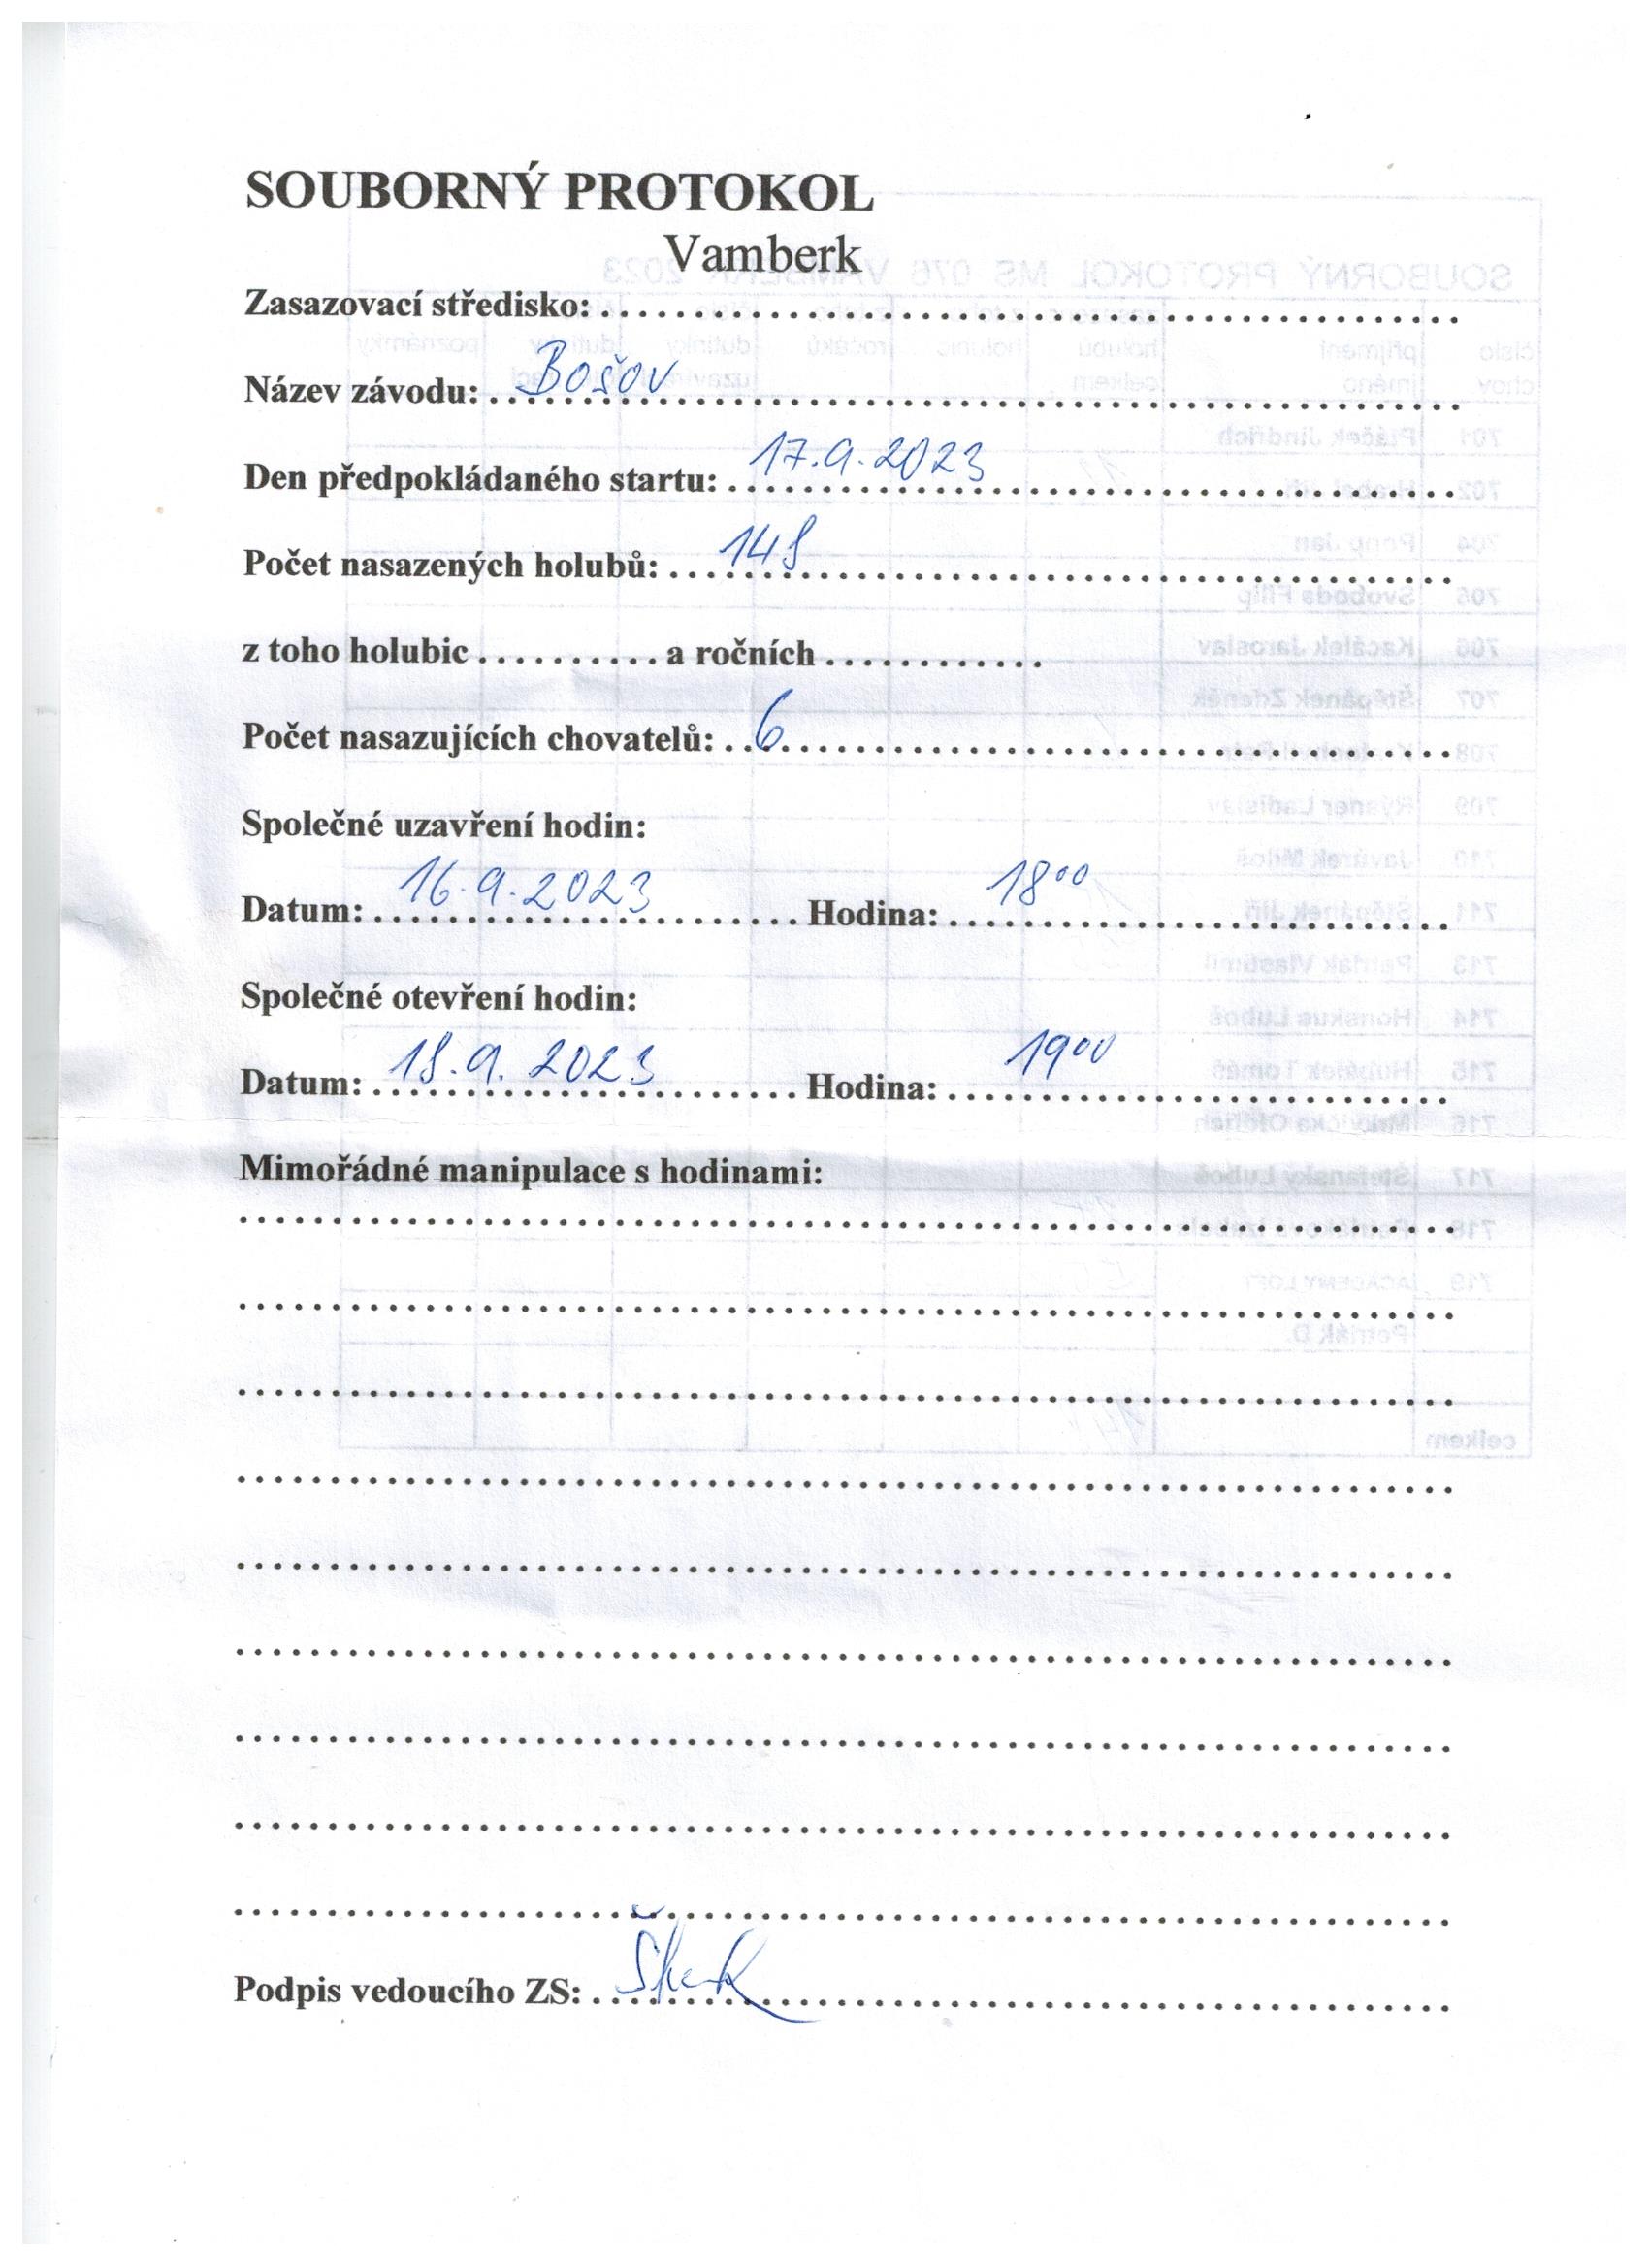 SOUBORNÝ PROTOKOL
Vamberk
Zasazovací středisko:
Název závodu: Bošov
Den předpokládaného startu: 17.9.2023
Počet nasazených holubů: 148
z toho holubic .......... a ročních ............
Počet nasazujících chovatelů: 6
Společné uzavření hodin:
Datum: 16.9.2023 Hodina: 18⁰⁰
Společné otevření hodin:
Datum: 18.9.2023 Hodina: 19⁰⁰
Mimořádné manipulace s hodinami:
Podpis vedoucího ZS: